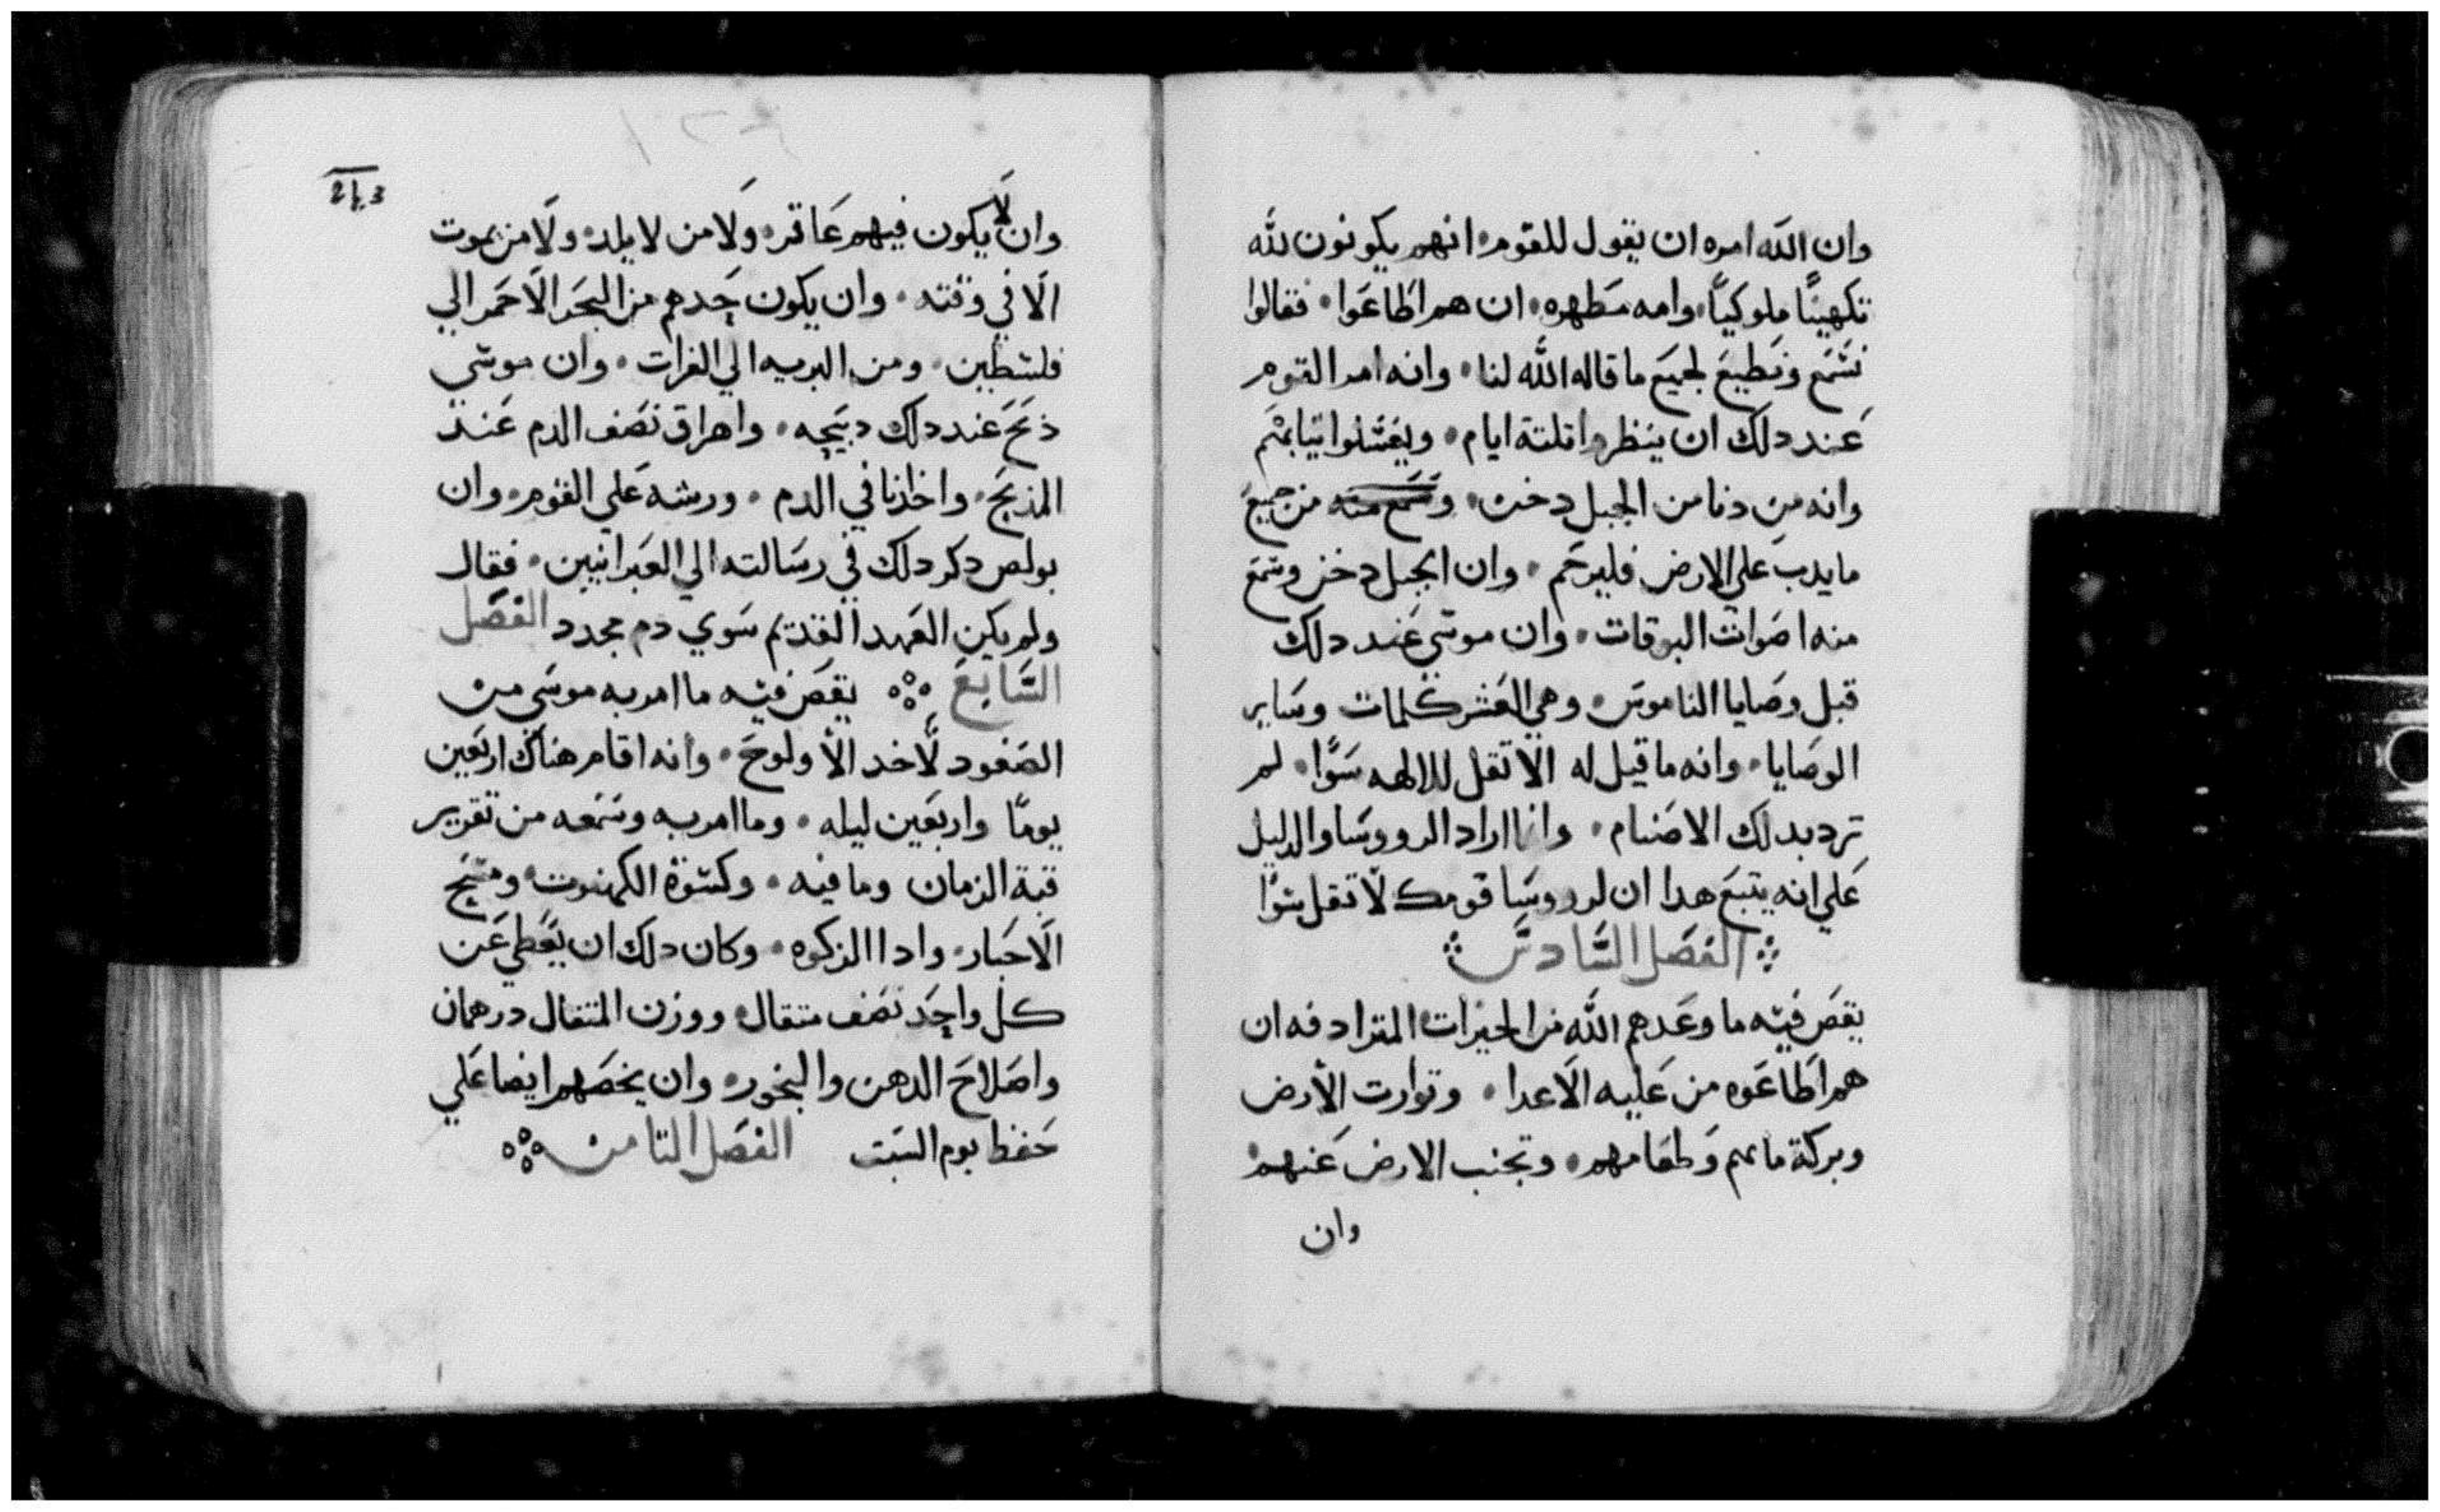 وان الله امره ان يقول للقوم انهم يكونون لله
تكهينًا ملوكيًا وامه مطهره ان هم اطاعوا فقالوا
نسمع ونطيع لجميع ما قاله الله لنا وانه امر القوم
عند دلك ان ينظروا تلتة ايام ويغسلوا تيابهم
وانه من دنا من الجبل دخن من جميع
ما يدب على الارض فليرجم وان الجبل دخن وسمع
منه اصوات البوقات وان موسي عند دلك
قبل وصايا الناموس وهي العشر كلمات وساير
الوصايا وانه ما قيل له الا تقل للالهه سوًا لم
ترد بدلك الاصنام وانما اراد الرووسا والدليل
علي انه يتبع هدا ان لرووسا قومك لا تقل سوًا
الفصل السادس
يقص فيه ما وعدهم الله من الخيرات المترادفه ان
هم اطاعوه من عليه الاعدا وتوارت الأرض
وبركة مايهم وطعامهم وتجنب الارض عنهم
وان
243
وان لا يكون فيهم عاقر ولا من لا يلد ولا من يموت
الا في وقته وان يكون حدهم من البحر الاحمر الي
فلسطين ومن البريه الي الفرات وان موسي
ذبح عند دلك دبيحه واهراق نصف الدم عند
المذبح في الدم ورشه علي القوم وان
بولص دكر دلك في رسالته الي العبرانيين فقال
ولم يكن العهد القديم سوي دم مجدد الفصل
السابع يقص فيه ما امر به موسي من
الصعود لاخد الالوح وانه اقام هناك اربعين
يومًا واربعين ليله وما امر به وسمعه من تقرير
قبة الزمان وما فيه وكسوة الكهنوت ومسح
الاحبار وادا الزكوه وكان دلك ان يعطي عن
كل واحد نصف متقال ووزن المتقال درهمان
واصلاح الدهن والبخور وان يخصهم ايضا علي
حفظ يوم السبت الفصل التامن